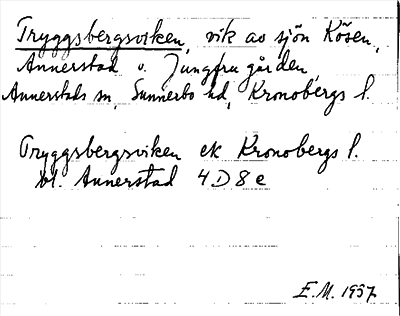 Tryggsbergsviken, vik av sjön Kösen,
Annerstad o. Jungfrugården,
Annerstads sn, Sunnerbo hd, Kronobergs l.
Tryggsbergsviken ek Kronobergs l.
bl. Annerstad 4D8e
E.M. 1937